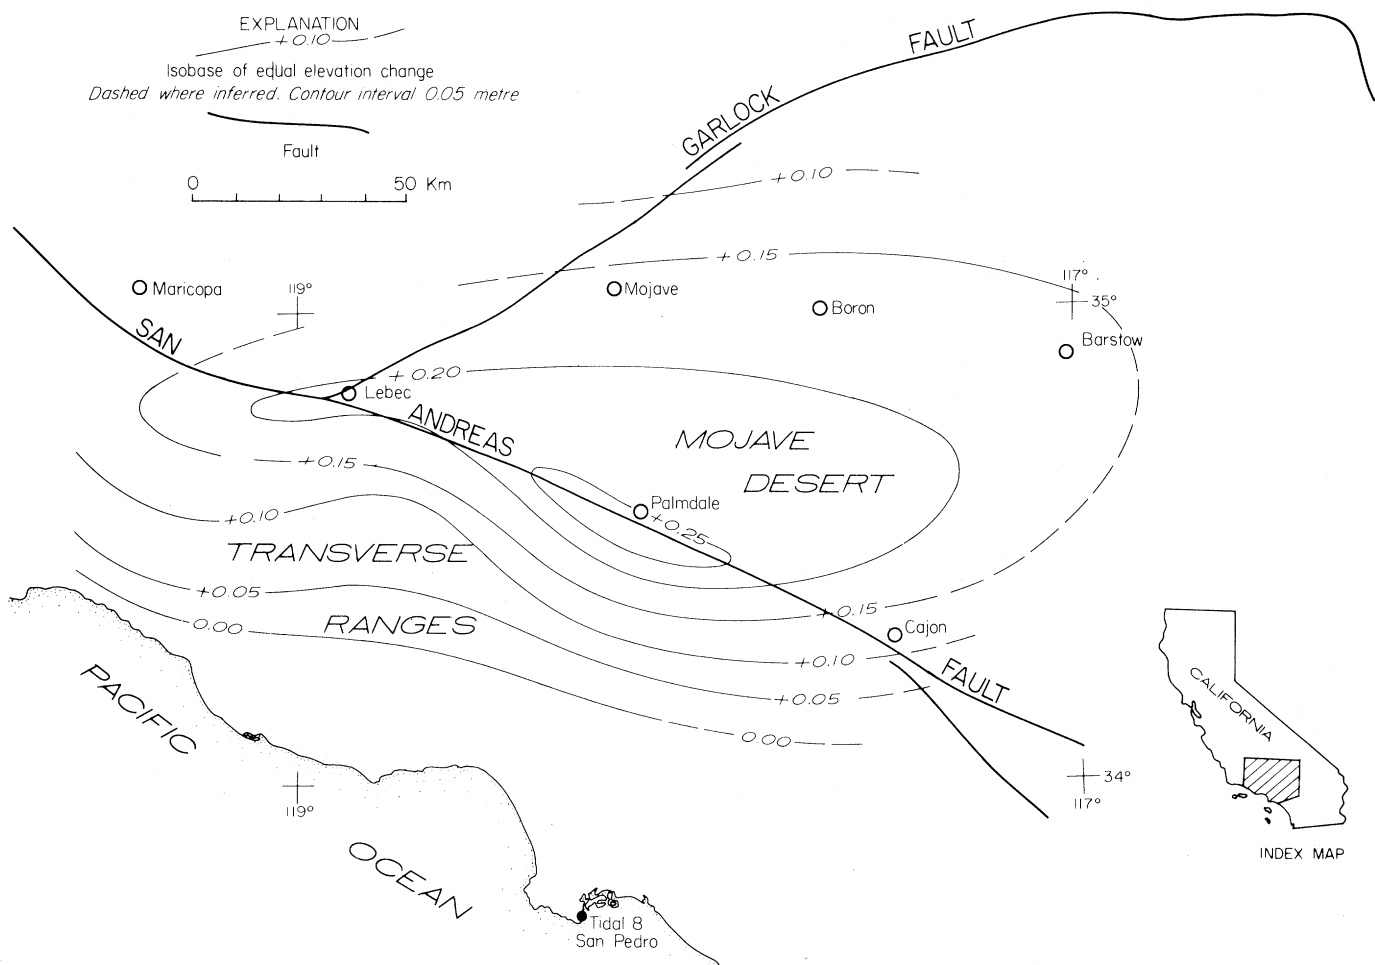 EXPLANATION
+0.10
Isobase of equal elevation change
Dashed where inferred. Contour interval 0.05 metre
Fault
0 50 Km
GARLOCK FAULT
+0.10
+0.15
117°
35°
Maricopa
119°
Mojave
Boron
Barstow
SAN ANDREAS FAULT
+0.20
Lebec
MOJAVE
DESERT
+0.15
Palmdale
+0.25
+0.10
TRANSVERSE
RANGES
+0.05
0.00
+0.15
Cajon
+0.10
+0.05
0.00
PACIFIC
OCEAN
119°
34°
117°
Tidal 8
San Pedro
CALIFORNIA
INDEX MAP